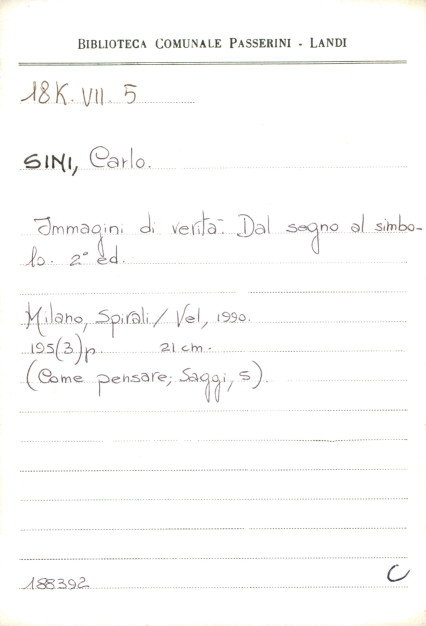 BIBLIOTECA COMUNALE PASSERINI - LANDI
18K. VII. 5
SINI, Carlo.
Immagini di verità. Dal segno al simbo-
lo. 2° ed.
Milano, Spirali/Vel, 1990.
195(3)p 21 cm.
(Come pensare; Saggi, 5).
188392
C